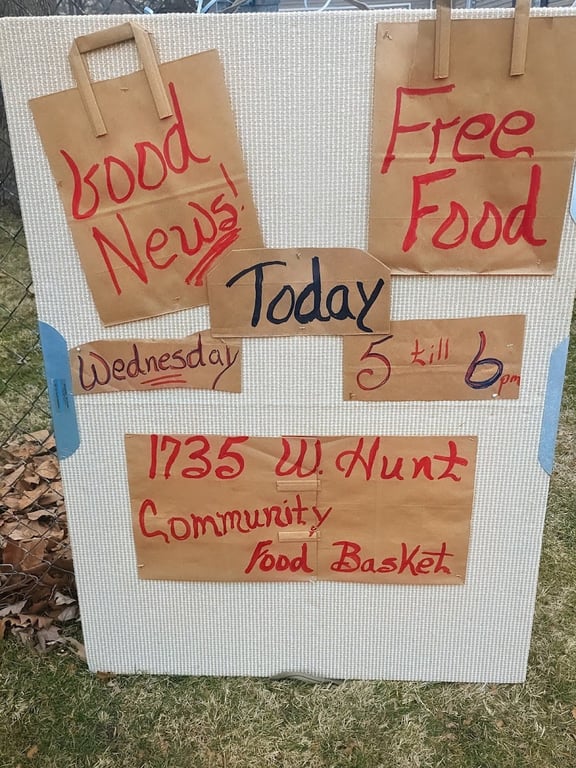 Good
News!
Free
Food
Today
Wednesday
5 till 6pm
1735 W. Hunt
Community
Food Basket